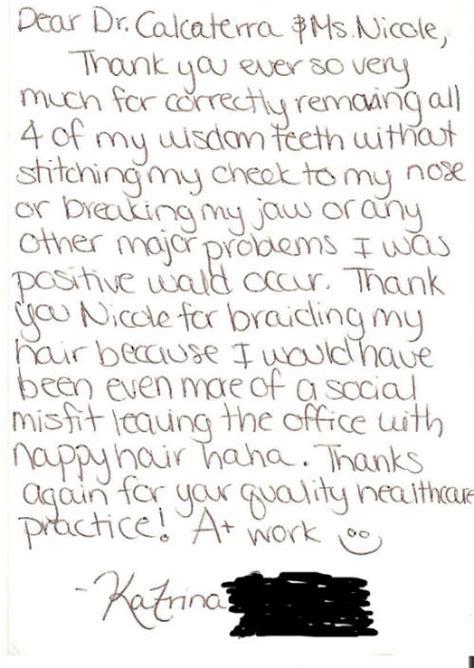 Dear Dr. Calcaterra & Ms. Nicole,
Thank you ever so very
much for correctly removing all
4 of my wisdom teeth without
stitching my cheek to my nose
or breaking my jaw or any
other major problems I was
positive would occur. Thank
you Nicole for braiding my
hair because I would have
been even more of a social
misfit leaving the office with
nappy hair haha. Thanks
again for your quality healthcare
practice! A+ work
- Katrina